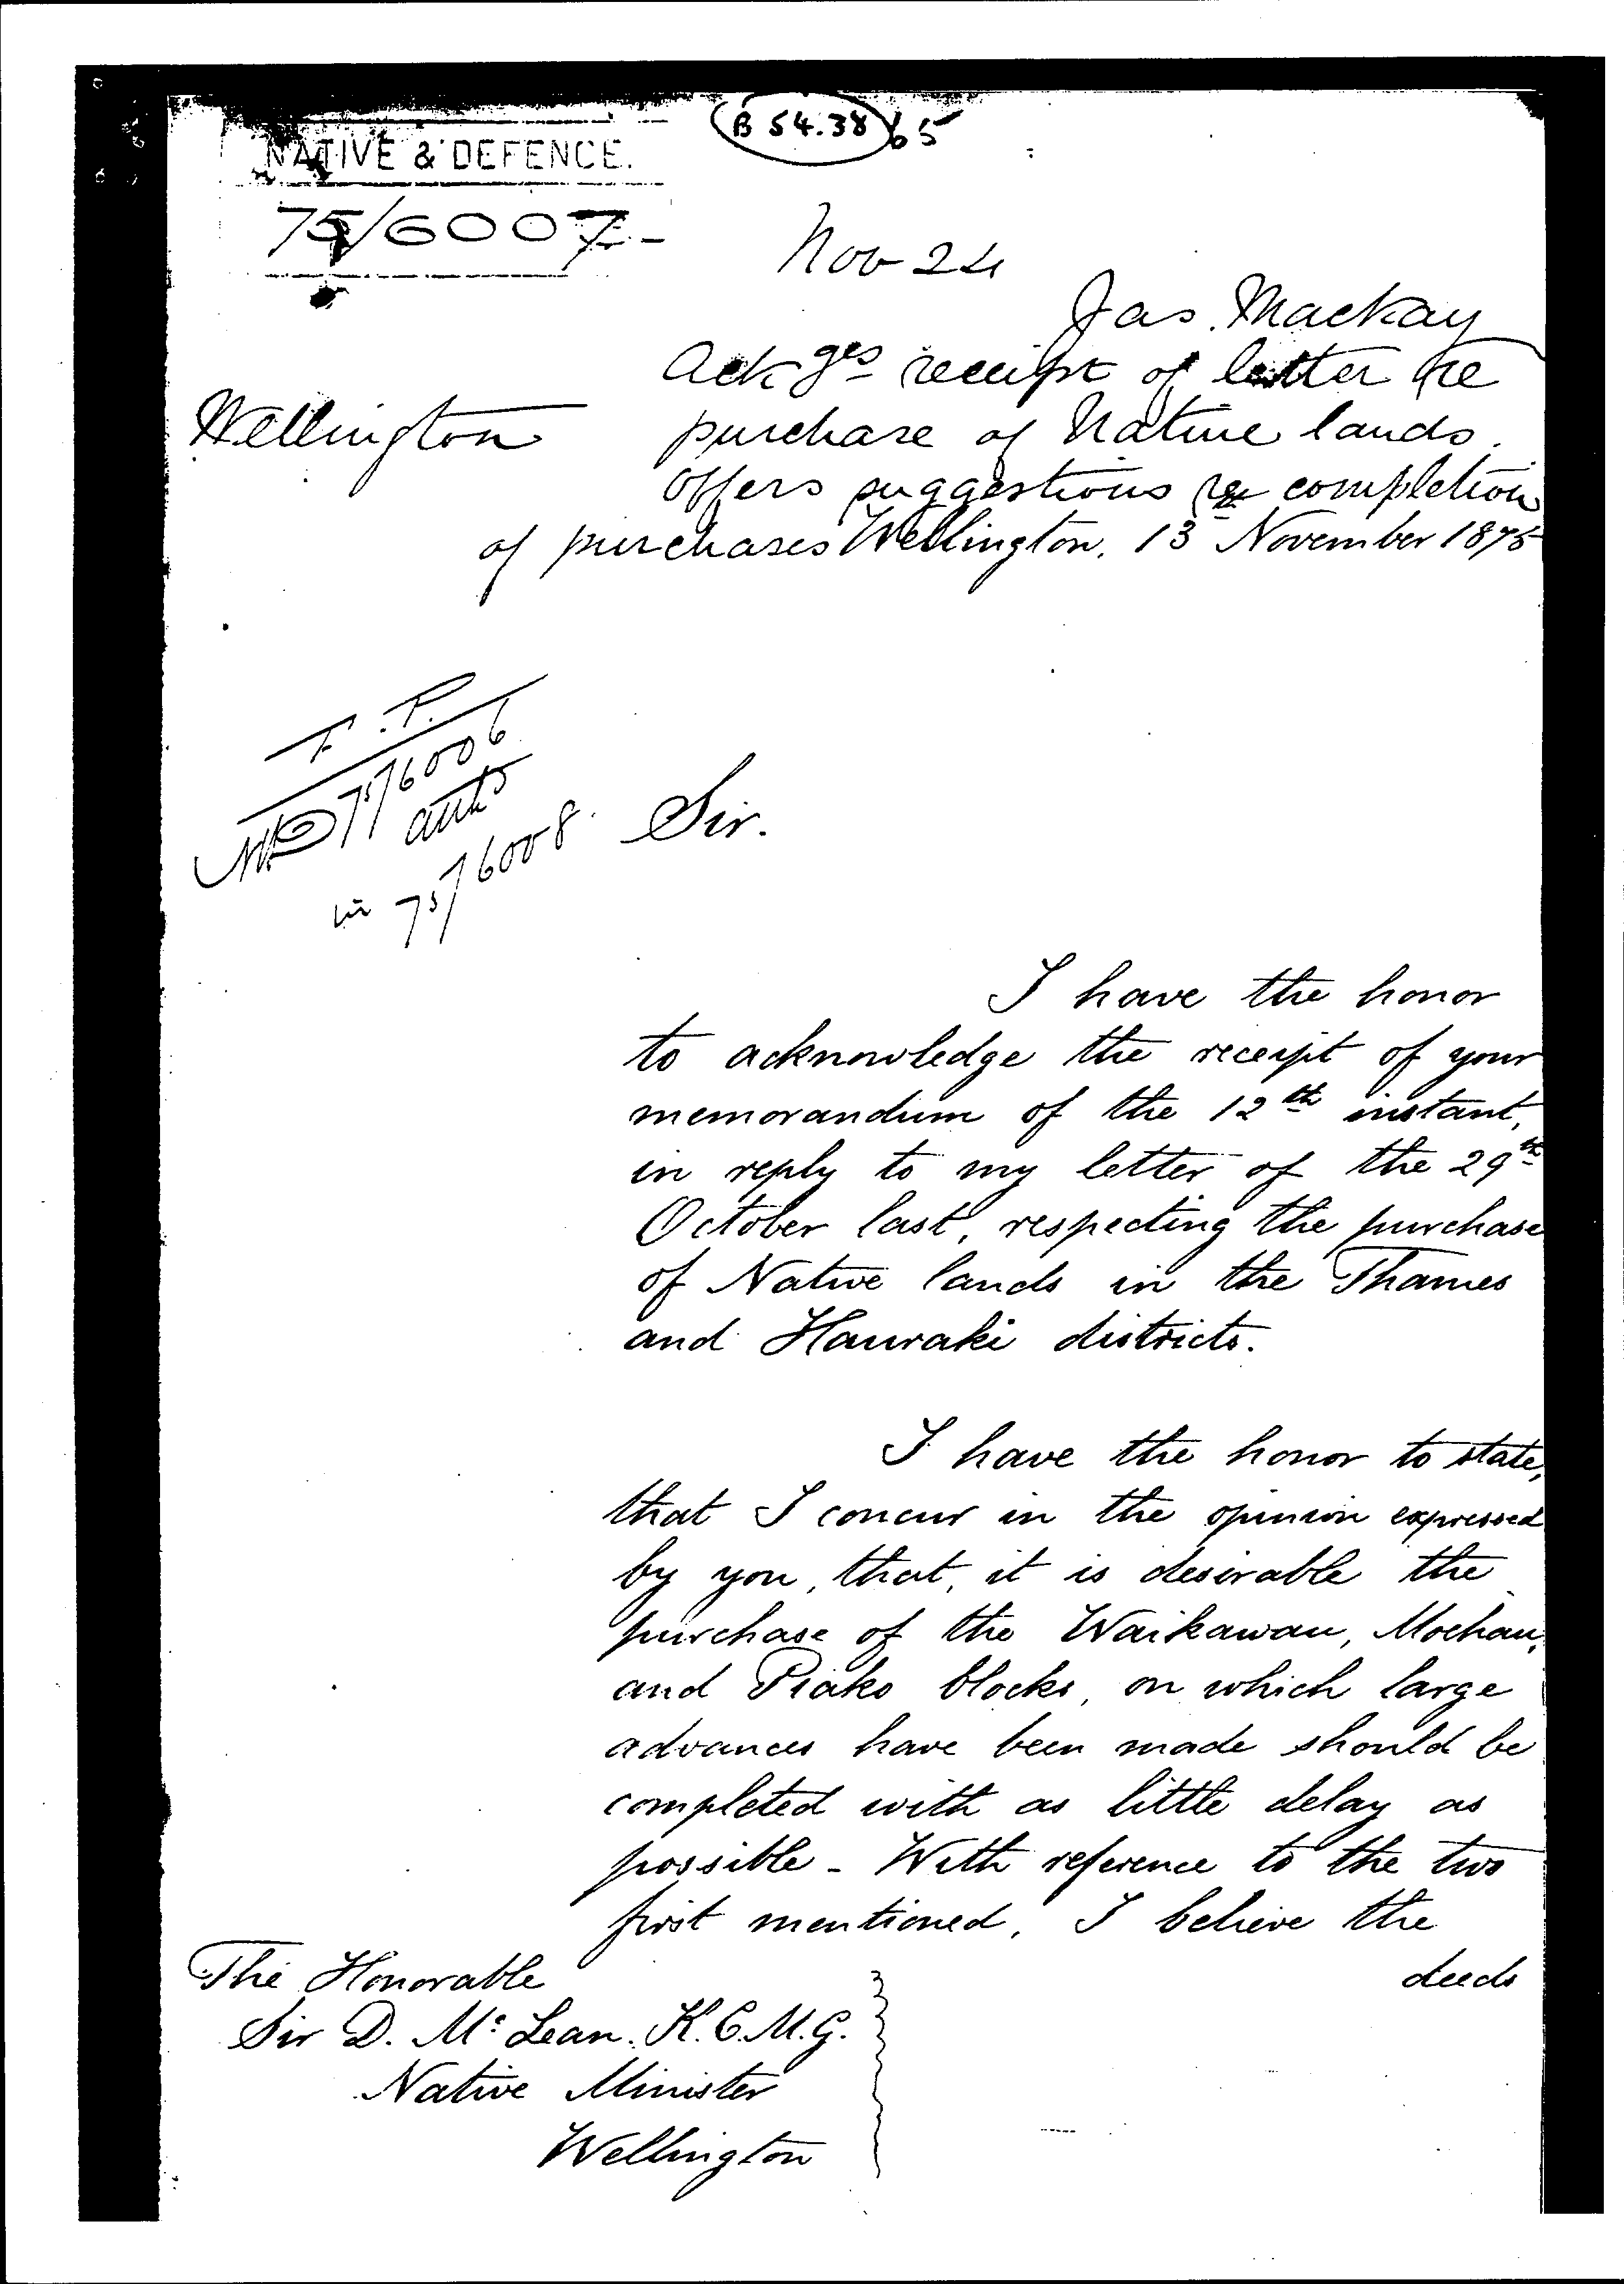 B 54.38 65
NATIVE & DEFENCE.
75/6007
Nov 24
Jas. Mackay
Ackges receipt of letter re
Wellington purchase of Native lands.
Offers suggestions re completion
of purchases Wellington. 13 November 1875
F. P.
75/6006
in 75/6008.
Sir.
I have the honor
to acknowledge the receipt of your
memorandum of the 12th instant,
in reply to my letter of the 29th
October last, respecting the purchase
of Native lands in the Thames
and Hauraki districts.
I have the honor to state,
that I concur in the opinion expressed
by you, that, it is desirable the
purchase of the Waikawau, Moehau,
and Piako blocks, on which large
advances have been made should be
completed with as little delay as
possible - With reference to the two
first mentioned, I believe the
deeds
The Honorable
Sir D. Mc Lean. K.C.M.G.
Native Minister
Wellington